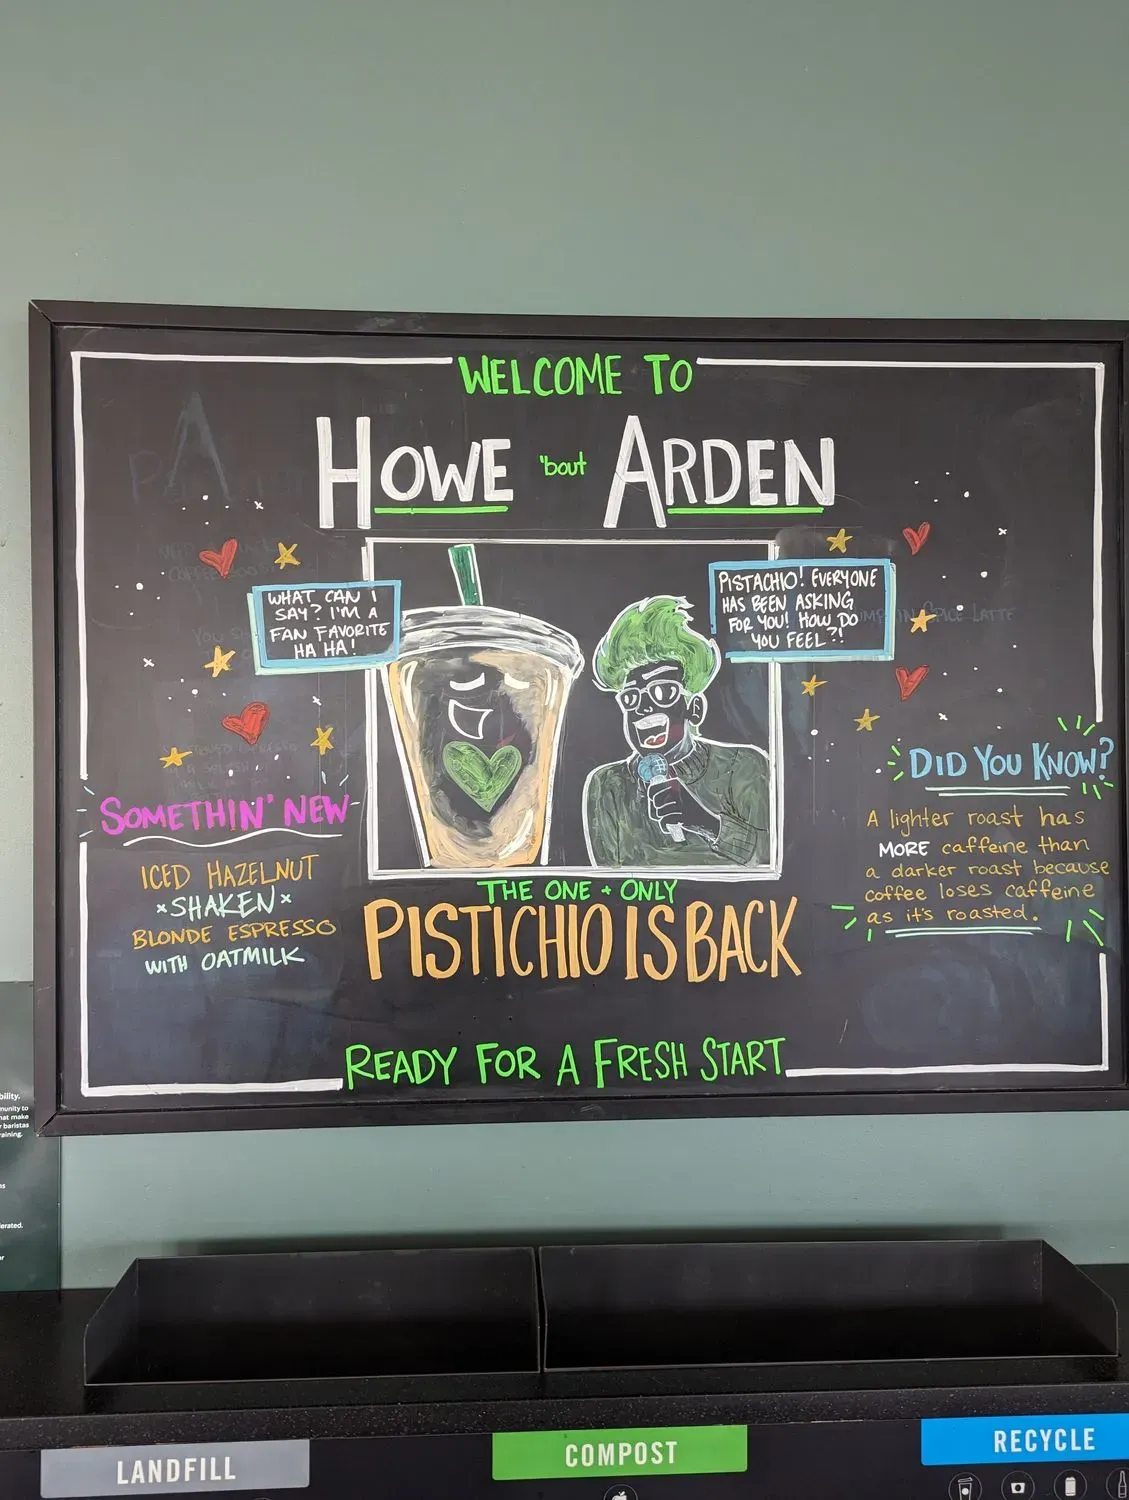 WELCOME TO
HOWE 'bout ARDEN
WHAT CAN I
SAY? I'M A
FAN FAVORITE
HA HA!
PISTACHIO! EVERYONE
HAS BEEN ASKING
FOR YOU! HOW DO
YOU FEEL?!
SOMETHIN' NEW
ICED HAZELNUT
×SHAKEN×
BLONDE ESPRESSO
WITH OATMILK
THE ONE + ONLY
PISTICHIO IS BACK
DID YOU KNOW?
A lighter roast has
MORE caffeine than
a darker roast because
coffee loses caffeine
as it's roasted.
READY FOR A FRESH START
LANDFILL
COMPOST
RECYCLE